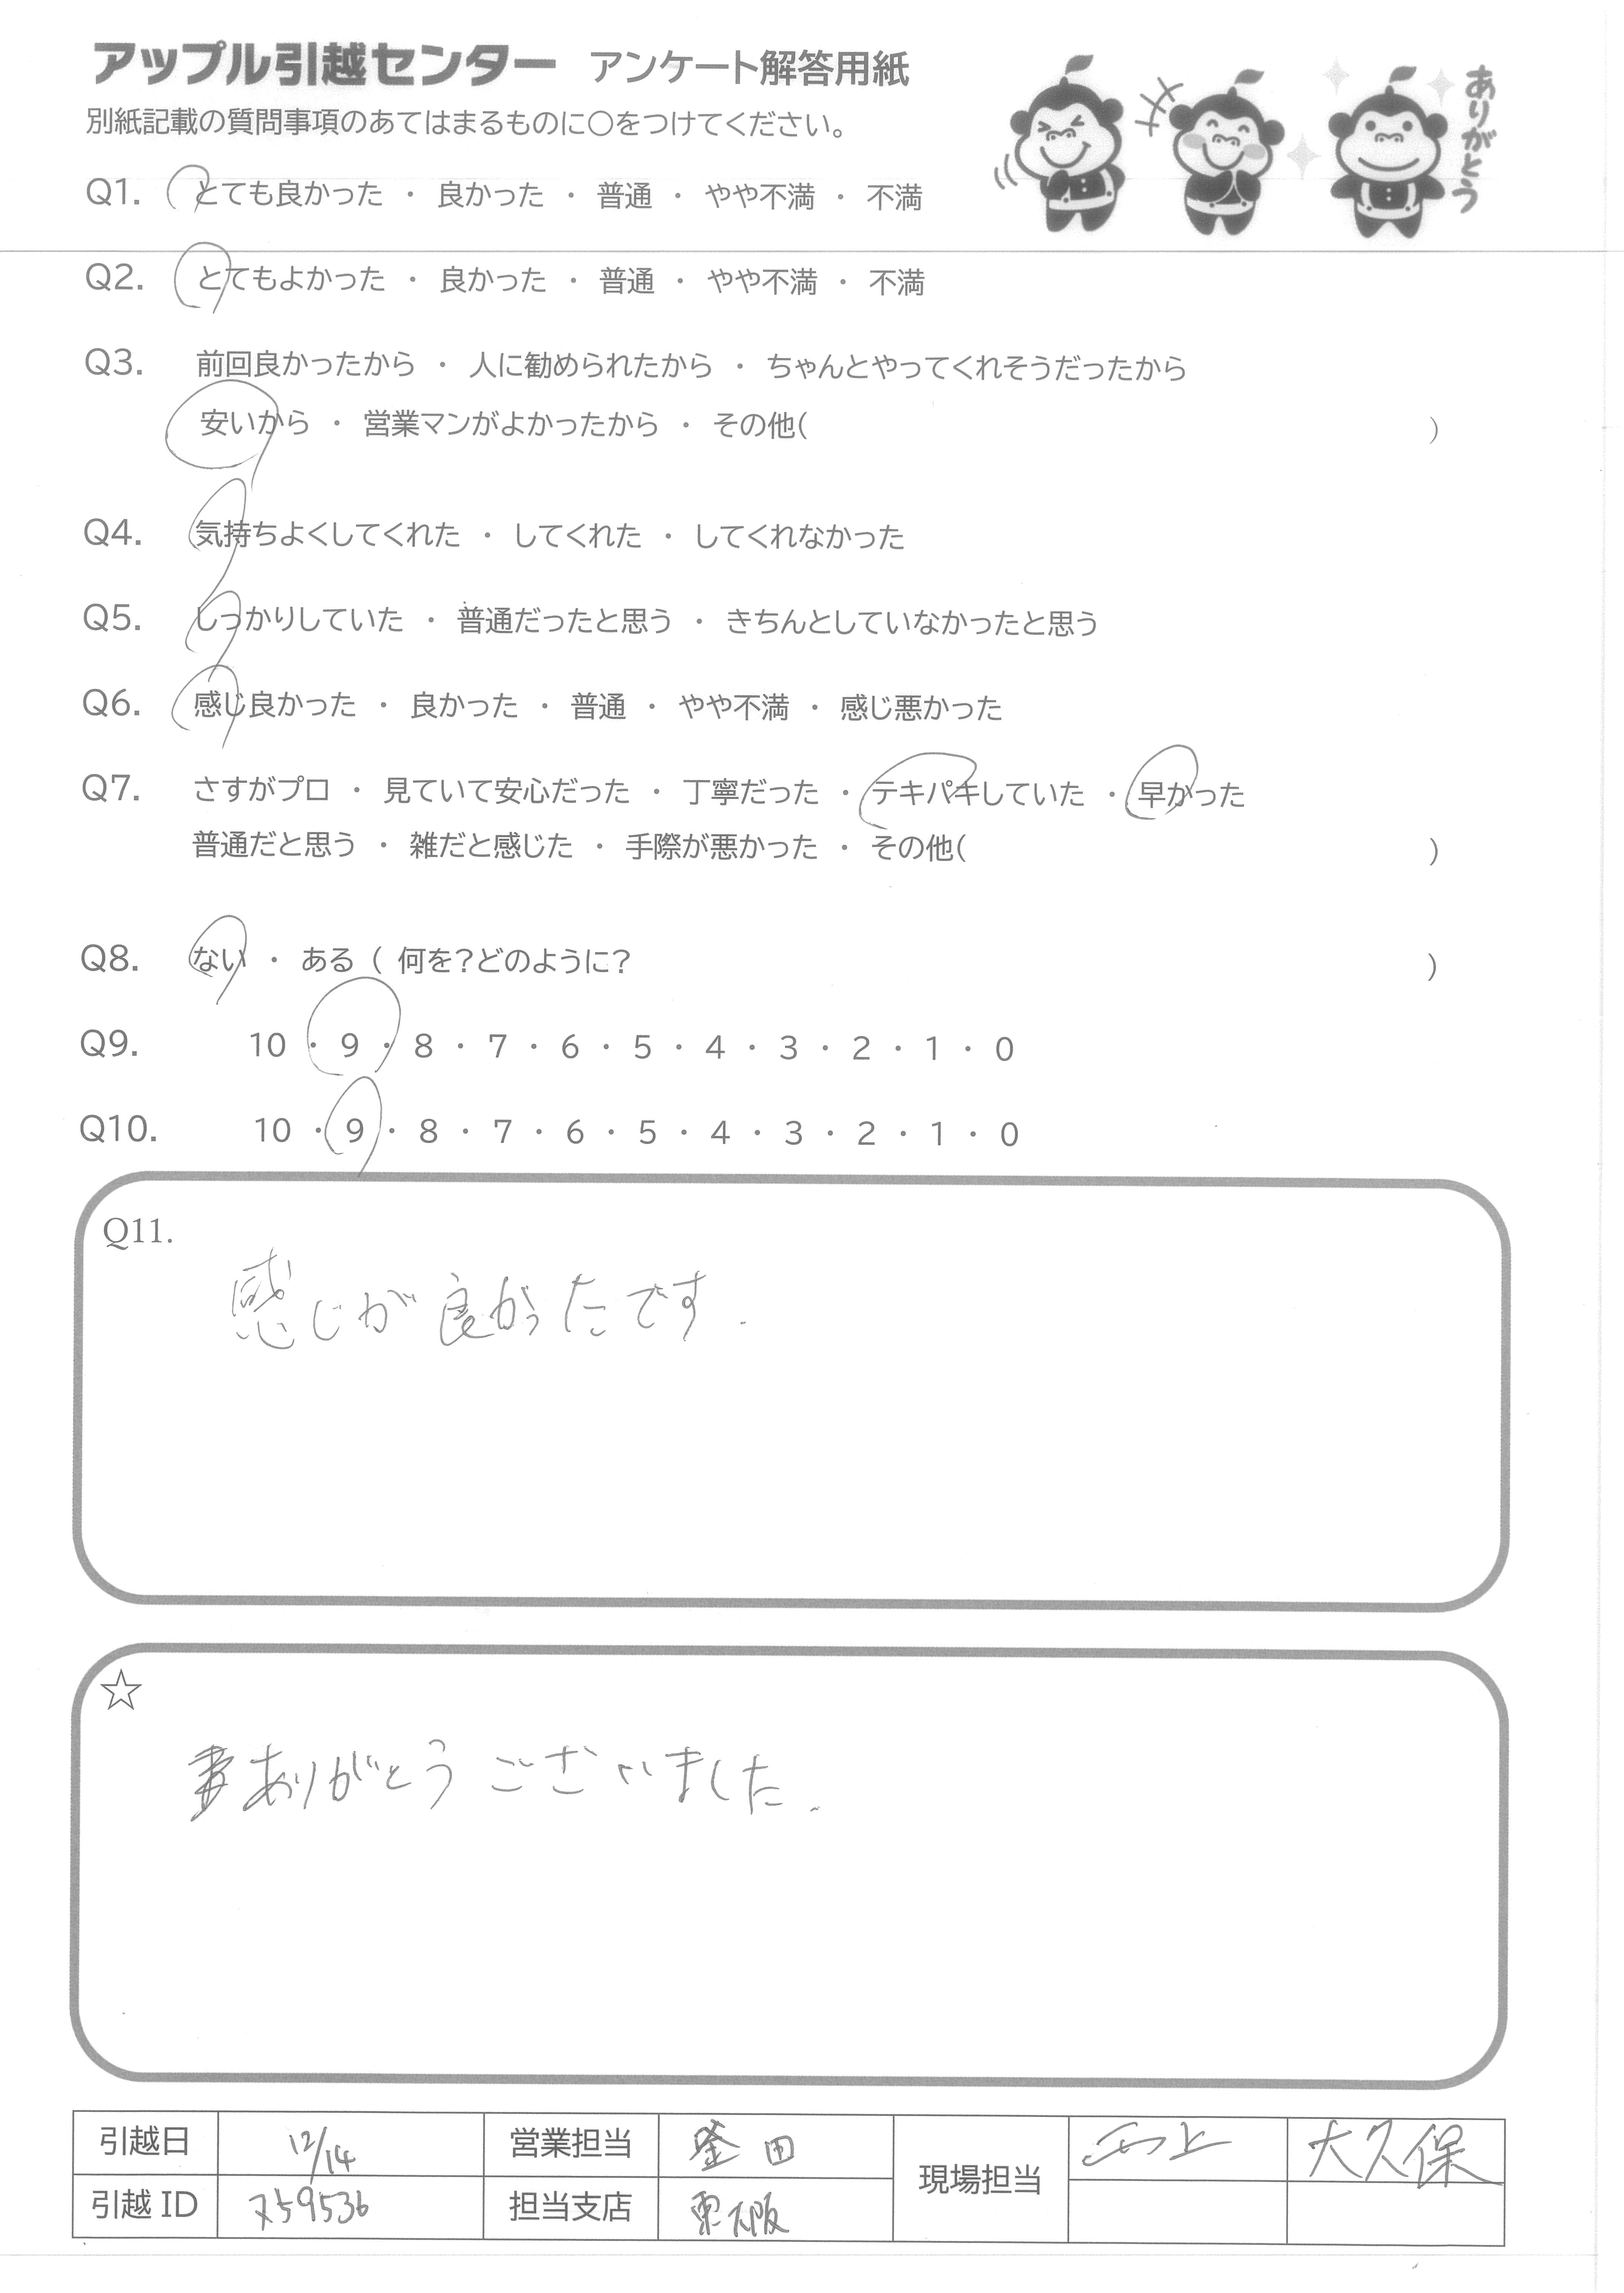 アップル引越センター アンケート解答用紙
ありがとう
別紙記載の質問事項のあてはまるものに○をつけてください。
Q1. とても良かった ・ 良かった ・ 普通 ・ やや不満 ・ 不満
Q2. とてもよかった ・ 良かった ・ 普通 ・ やや不満 ・ 不満
Q3. 前回良かったから ・ 人に勧められたから ・ ちゃんとやってくれそうだったから
安いから ・ 営業マンがよかったから ・ その他( )
Q4. 気持ちよくしてくれた ・ してくれた ・ してくれなかった
Q5. しっかりしていた ・ 普通だったと思う ・ きちんとしていなかったと思う
Q6. 感じ良かった ・ 良かった ・ 普通 ・ やや不満 ・ 感じ悪かった
Q7. さすがプロ ・ 見ていて安心だった ・ 丁寧だった ・ テキパキしていた ・ 早かった
普通だと思う ・ 雑だと感じた ・ 手際が悪かった ・ その他( )
Q8. ない ・ ある ( 何を?どのように? )
Q9. 10 ・ 9 ・ 8 ・ 7 ・ 6 ・ 5 ・ 4 ・ 3 ・ 2 ・ 1 ・ 0
Q10. 10 ・ 9 ・ 8 ・ 7 ・ 6 ・ 5 ・ 4 ・ 3 ・ 2 ・ 1 ・ 0
Q11.
感じが良かったです.
☆
ありがとうございました.
引越日 12/14 営業担当 釜田 現場担当 大久保
引越ID 担当支店 東大阪